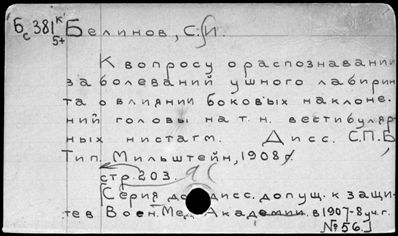 Бс 381 к 5+ Белинов, С. И.
К вопросу о распознавании
заболеваний ушного лабирин
та о влиянии боковых наклоне-
ний головы на т. н. вестибуляр-
ных нистагм. Дисс. С.П.Б,
Тип. Мильштейн, 1908
стр. 203.
[Серия док. дисс. допущ. к защи-
те в Воен. Мед. Академии. в 1907-8 уч. г.
№ 56.]